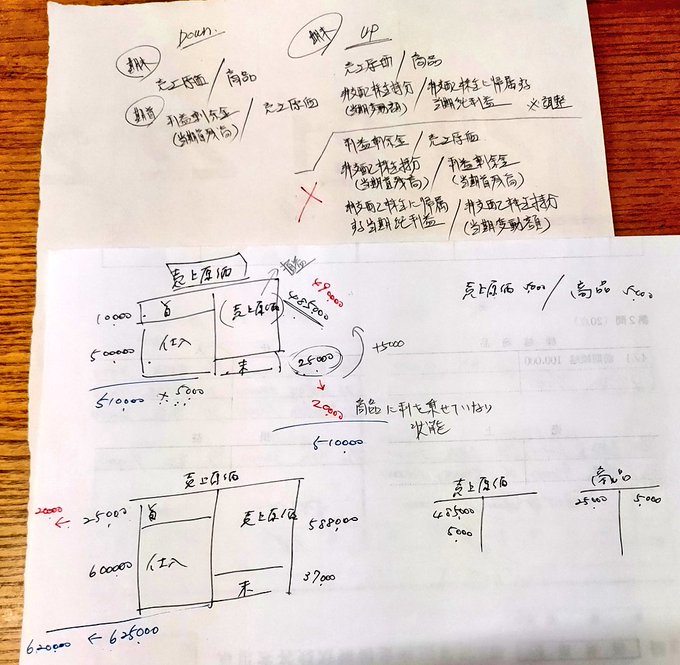 Down.
期末
売上原価 / 商品
期首
利益剰余金 / 売上原価
(当期首残高)
期末 UP
売上原価 / 商品
非支配株主持分 / 非支配株主に帰属する
(当期変動額) 当期純利益 ※調整
利益剰余金 / 売上原価
非支配株主持分 / 利益剰余金
(当期首残高) (当期首残高)
非支配株主に帰属 / 非支配株主持分
する当期純利益 (当期変動額)
売上原価
損益
490000
10000 首 (売上原価) 485000
500000 仕入
末 25000 +5000
510000
5000
20000 商品に利を乗せていない
状態
510000
売上原価 5000 / 商品 5000
第2問 (20点)
売上原価
20000 ← 25000 首 売上原価 588000
600000 仕入
末 37000
620000 ← 625000
売上原価
485000
5000
商品
25000 5000